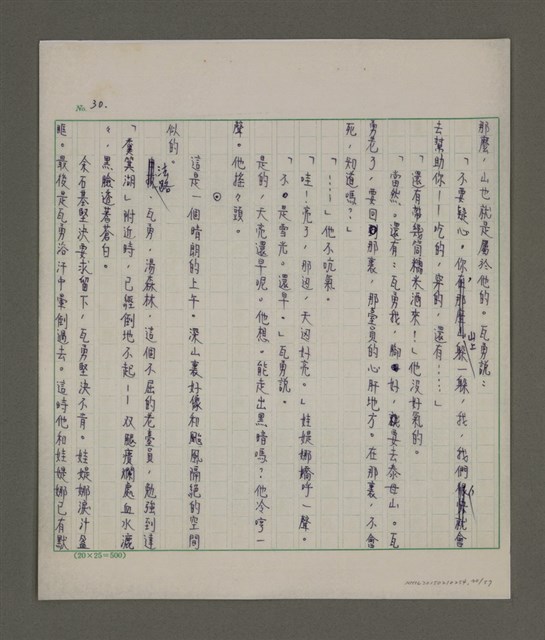 No. 30.
那麼，山也就是屬於他的。瓦勇說：
「不要疑心。你，躲一躲，我，我們就會
山上
去幫助你——吃的，穿的，還有……」
「還有帶幾筒糯米酒來！」他沒好氣的。
「當然。還有：瓦勇我，腳好，就要去泰母山。瓦
勇老了，要回那裏，那臺員的心肝地方。在那裏，不會
死，知道嗎？」
「……」他不吭氣。
「哇！亮了，那邊，天邊好亮。」娃媞娜嬌呼一聲。
「不。是雪光。還早。」瓦勇說。
是的，天亮還早呢。他想。能走出黑暗嗎？他冷哼一
聲。他搖々頭。
⊙
這是一個晴朗的上午。深山裏好像和颱風隔絕的空間
似的。
法路
．瓦勇．湯森林．這個不屈的老臺員，勉強到達
「虞箕湖」附近時，已經倒地不起——双腿潰爛處血水漉
々，黑臉透著蒼白。
余石基堅決要求留下，瓦勇堅決不肯。娃媞娜淚汁盈
眶。最後是瓦勇浴汗中暈倒過去。這時他和娃媞娜已有默
(20×25=500)